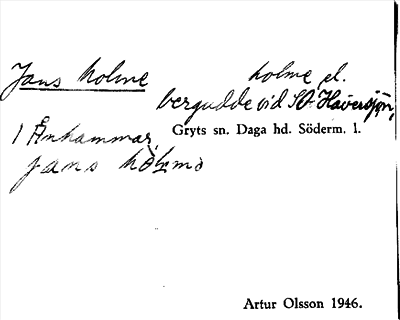 Jans holme holme el.
bergudde vid St Haversjön,
1 Änhammar, Gryts sn. Daga hd. Söderm. l.
jans hòlmə
Artur Olsson 1946.